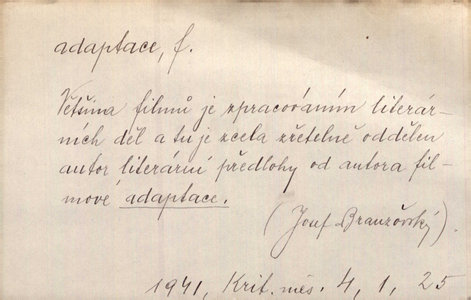 adaptace, f.
Většina filmů je zpracováním literár-
ních děl a tu je zcela zřetelně oddělen
autor literární předlohy od autora fil-
mové adaptace.
(Josef Branžovský).
1941, Krit. měs. 4, 1, 25